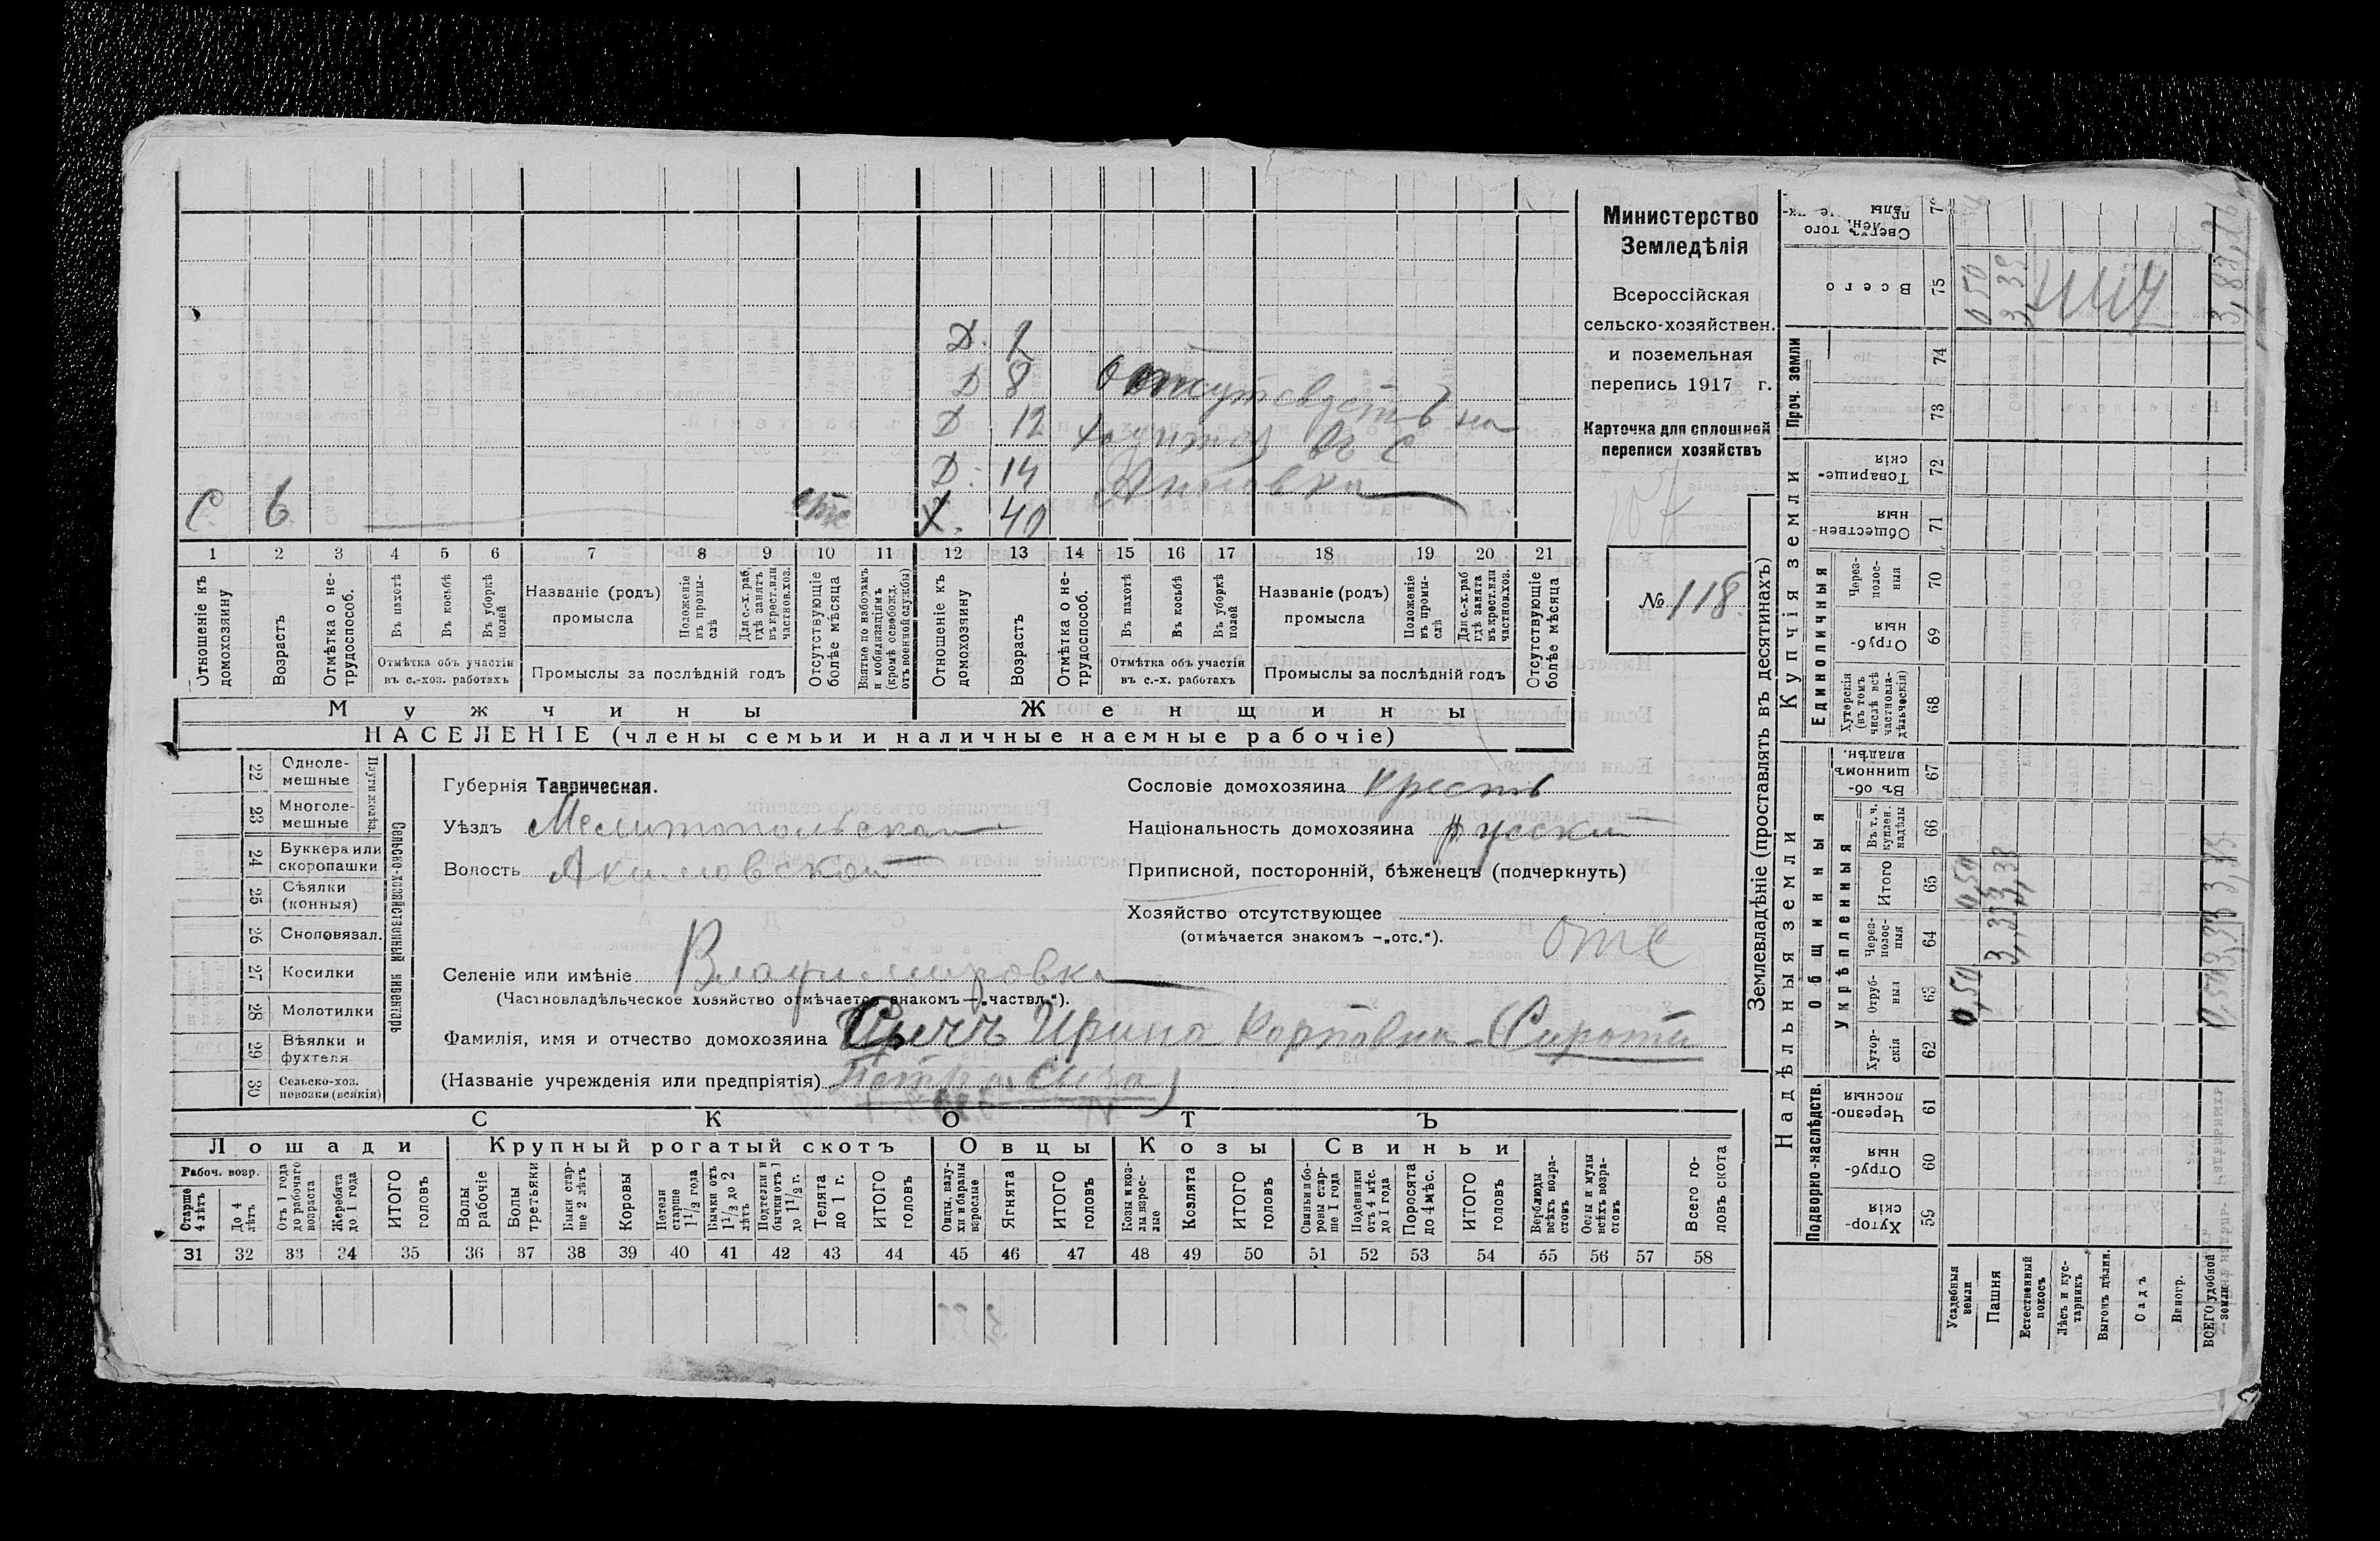 Министерство
Земледѣлія
Всероссійская
сельско-хозяйствен.
и поземельная
перепись 1917 г.
Карточка для сплошной
переписи хозяйствъ
№ 118
Д. 2
Д 8
Д 12
Д. 14
С 6 Х. 40
отсутствуетъ на
въ с
1 2 3 4 5 6 7 8 9 10 11 12 13 14 15 16 17 18 19 20 21
Отношеніе къ домохозяину
Возрастъ
Отмѣтка о не-трудоспособ.
Въ пахотѣ
Въ косьбѣ
Въ уборкѣ полей
Отмѣтка объ участіи въ с.-хоз. работахъ
Названіе (родъ) промысла
Положеніе въ промы-слѣ
Для с.-х. раб, гдѣ занятъ въ крест. или частнов. хоз.
Промыслы за послѣдній годъ
Отсутствующіе болѣе мѣсяца
Взятые по наборамъ и мобилизаціямъ (кромѣ освобожд. отъ военной службы)
Отношеніе къ домохозяину
Возрастъ
Отмѣтка о не-трудоспособ.
Въ пахотѣ
Въ косьбѣ
Въ уборкѣ полей
Отмѣтка объ участіи въ с.-х. работахъ
Названіе (родъ) промысла
Положеніе въ промы-слѣ
Для с.-х. раб гдѣ занята въ крест. или частнов. хоз.
Промыслы за послѣдній годъ
Отсутствующіе болѣе мѣсяца
Мужчины Женщины
НАСЕЛЕНІЕ (члены семьи и наличные наемные рабочіе)
22 Одноле-мешные
23 Многоле-мешные
24 Буккера или скоропашки
25 Сѣялки (конныя)
26 Сноповязал.
27 Косилки
28 Молотилки
29 Вѣялки и фухтеля
30 Сельско-хоз. повозки (всякія)
Сельско-хозяйственный инвентарь
Губернія Таврическая.
Уѣздъ Мелитопольская
Волость Акимовской
Селеніе или имѣніе Владимировка
(Частновладѣльческое хозяйство отмѣчается знакомъ — „частвл.“).
Фамилія, имя и отчество домохозяина Сычъ Ирина Карповна - (Сироты
(Названіе учрежденія или предпріятія) Петра Сыча)
Сословіе домохозяина крест
Національность домохозяина русский
Приписной, посторонній, бѣженецъ (подчеркнуть)
Хозяйство отсутствующее
(отмѣчается знакомъ -„отс.“). отс
СКОТЪ
Лошади Крупный рогатый скотъ Овцы Козы Свиньи
Рабоч. возр.
Старше 4 лѣтъ
До 4 лѣтъ
Отъ 1 года до рабочаго возраста
Жеребята до 1 года
ИТОГО головъ
Волы рабочіе
Волы третьяки
Быки стар-ше 2 лѣтъ
Коровы
Нетели старше 1½ года
Бычки отъ 1½ до 2 лѣтъ
Подтелки и бычки отъ 1 до 1½ г.
Телята до 1 г.
ИТОГО головъ
Овцы, валу-хи и бараны взрослые
Ягнята
ИТОГО головъ
Козы и коз-лы взрос-лые
Козлята
ИТОГО головъ
Свиньи и бо-ровы стар-ше 1 года
Подсвинки отъ 4 мѣс. до 1 года
Поросята до 4 мѣс.
ИТОГО головъ
Верблюды всѣхъ возра-стовъ
Ослы и мулы всѣхъ возра-стовъ
Всего го-ловъ скота
31 32 33 34 35 36 37 38 39 40 41 42 43 44 45 46 47 48 49 50 51 52 53 54 55 56 57 58
Землевладѣніе (проставлять въ десятинахъ)
Надѣльныя земли Купчія земли Проч. земли
Подворно-наслѣдств.
Общинныя
Укрѣпленныя
Единоличныя
Хутор-скія 59
Отруб-ныя 60
Черезпо-лосныя 61
Хутор-скія 62
Отруб-ныя 63
Через-полос-ныя 64
Итого 65
Въ т. ч. куплен. надѣлы 66
Въ об-щинномъ владѣн. 67
Хуторскія (въ томъ числѣ всѣ частновла-дѣльческія) 68
Отруб-ныя 69
Через-полос-ныя 70
Обществен-ныя 71
Товарище-скія 72
73
74
Всего 75
Сверхъ того
Усадебныя земли 0,50 0,50 0 50
Пашня 3,33 3,33 3,33
Естественный покосъ
Лѣсъ и кус-тарникъ
Выгонъ дѣлим.
Садъ
Виногр.
ВСЕГО удобной земли 0,50 3,33 3,83